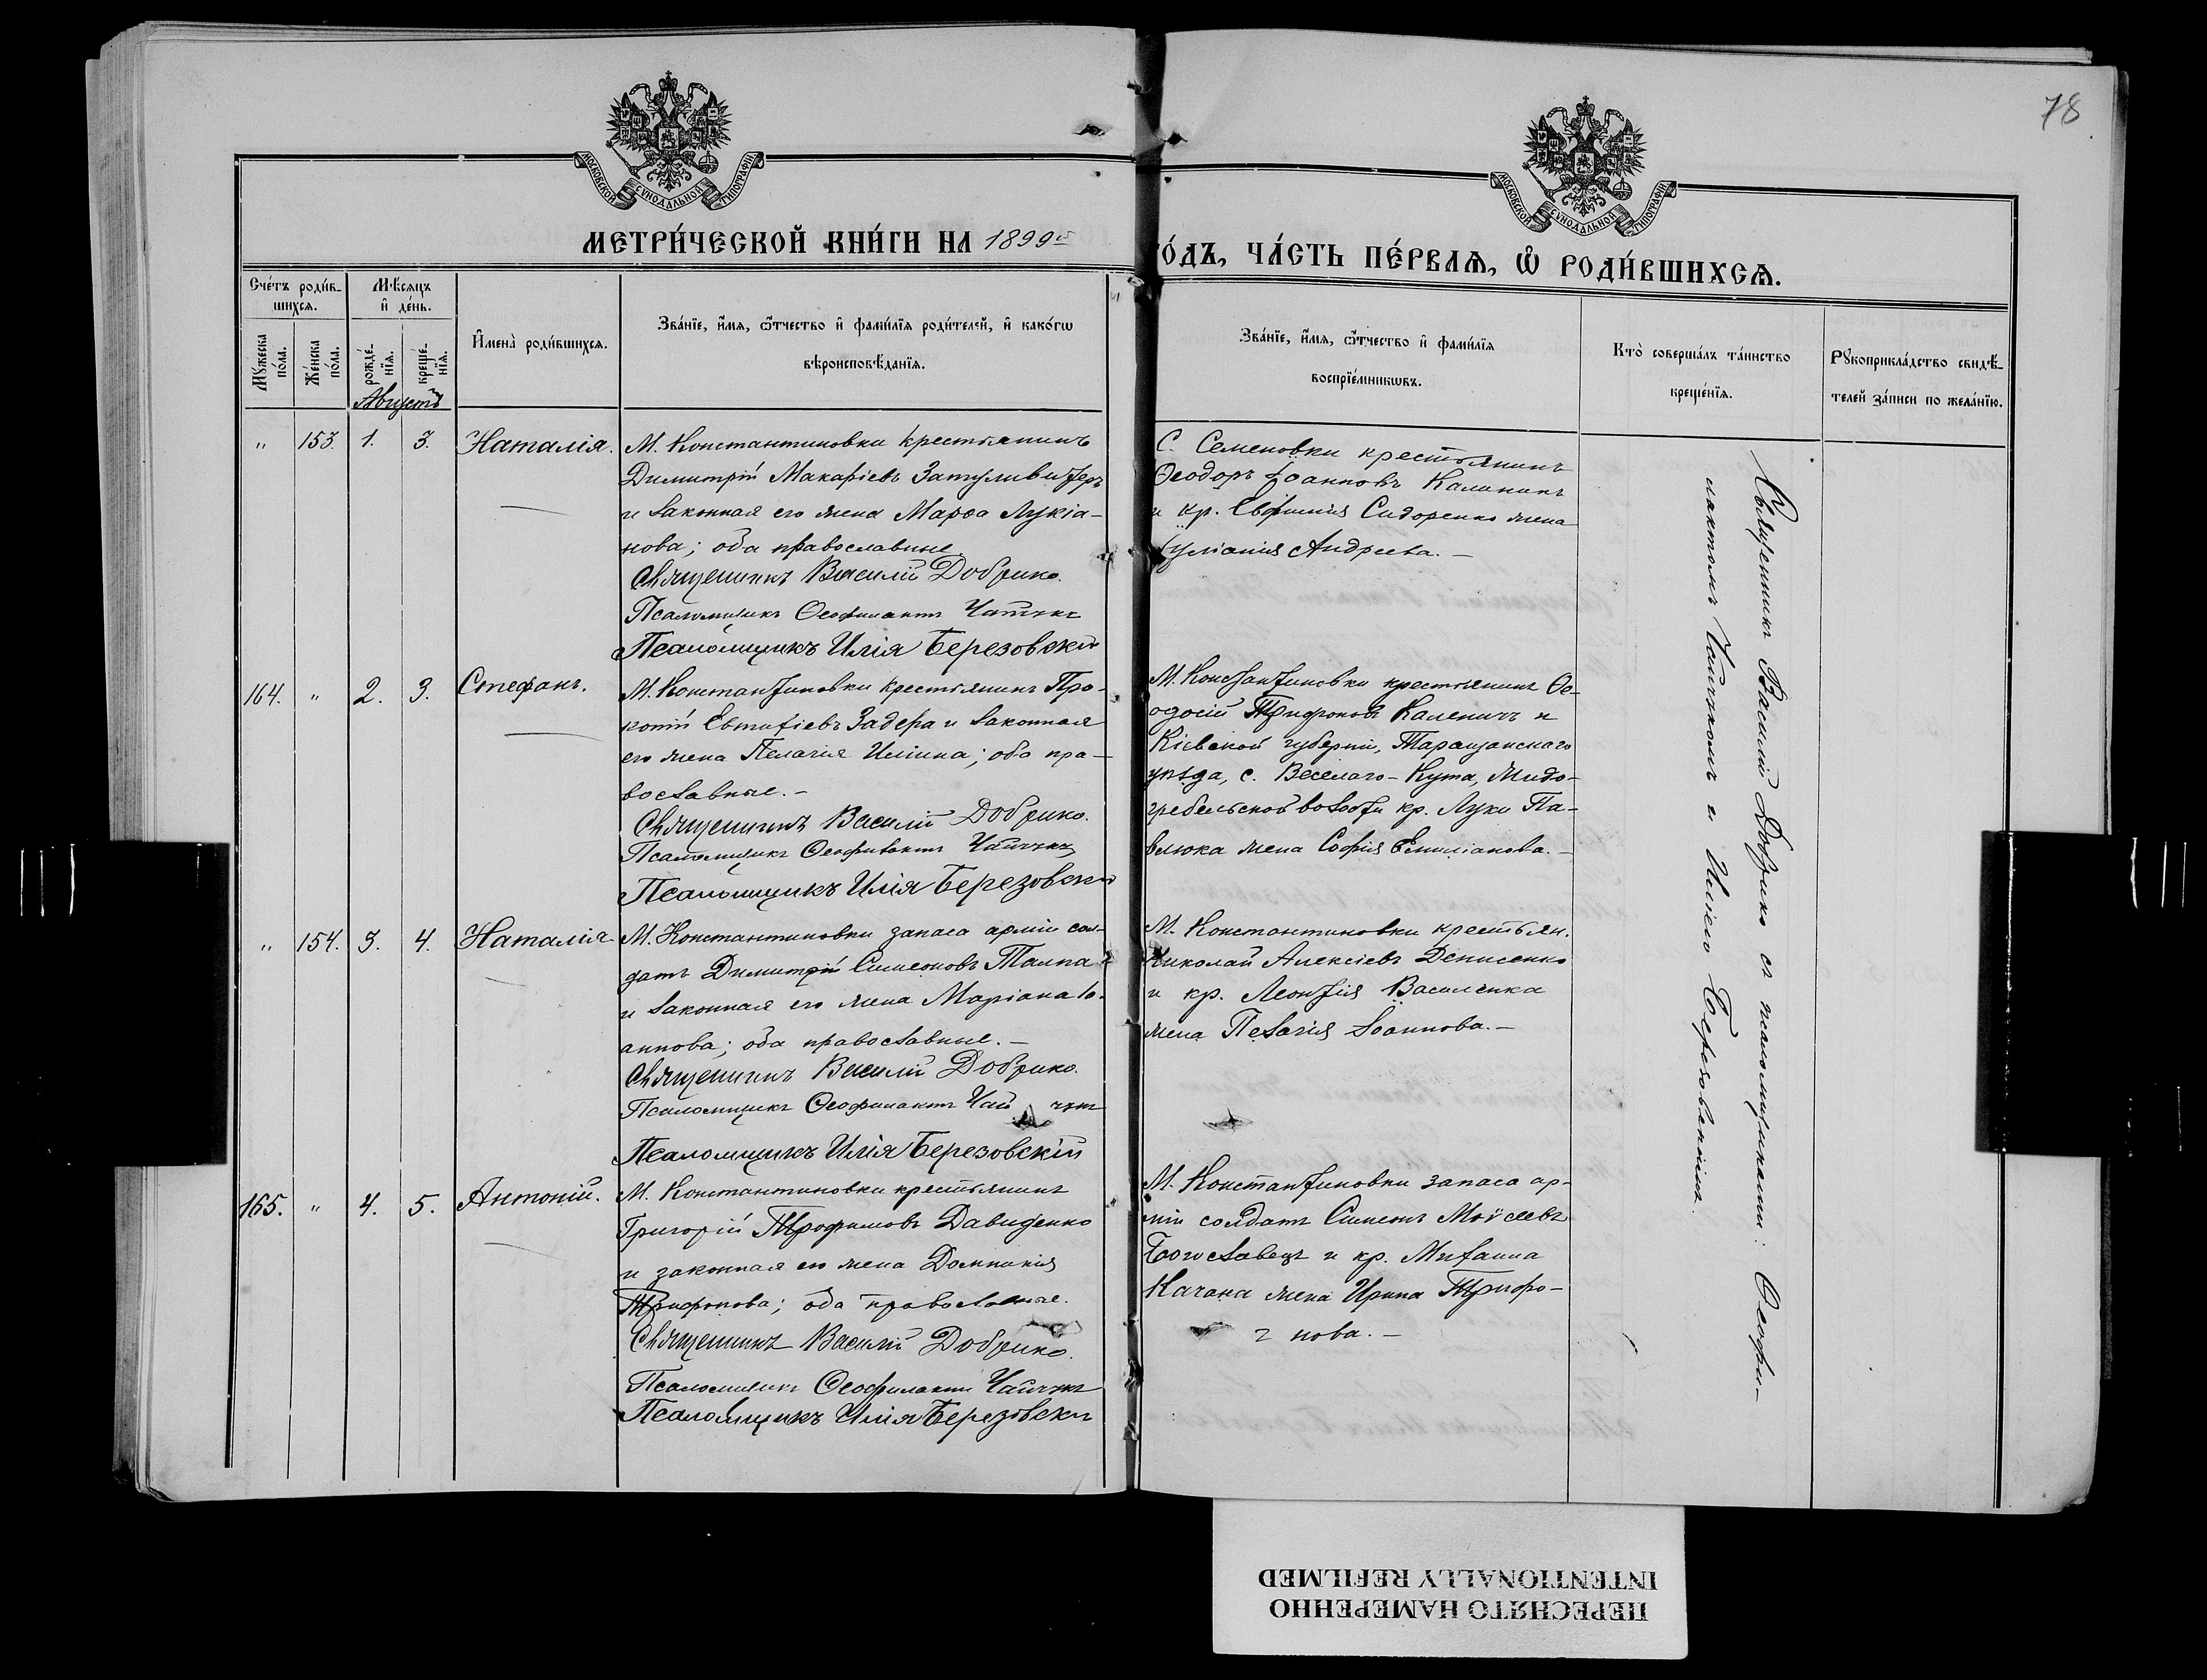 78
МОСКОВСКОЙ СѴНОДАЛЬНОЙ ТИПОГРАФІИ
МОСКОВСКОЙ СѴНОДАЛЬНОЙ ТИПОГРАФІИ
МЕТРИ́ЧЕСКОЙ КНИ́ГИ НА 1899й
ГО́ДЪ, ЧА́СТЬ ПЕ́РВАѦ, Ѽ РОДИ́ВШИХСѦ.
Сче́тъ роди́в-
шихсѧ.
Мѣ́сѧцъ
и҆ де́нь.
Мꙋ́жеска по́ла.
Же́нска по́ла.
рожде́-
нїѧ.
креще́-
нїѧ.
И҆мена̀ роди́вшихсѧ.
Зва́нїе, и҆́мѧ, ѻ҆́тчество и҆ фами́лїѧ роди́телей, и҆ како́гѡ
вѣроисповѣ́данїѧ.
Зва́нїе, и҆́мѧ, ѻ҆́тчество и҆ фами́лїѧ
воспрїе́мникѡвъ.
Кто̀ соверша́лъ та́инство
креще́нїѧ.
Рꙋкоприкла́дство свидѣ́-
телей за́писи по жела́нїю.
Августъ
" 153. 1. 3. Наталія.
М. Константиновки крестьянинъ
Димитрій Макаріевъ Затуливитеръ
и законная его жена Марѳа Лукіа-
нова; оба православные.
Священникъ Василій Добрико.
Псаломщикъ Ѳеофилактъ Чайчукъ
Псаломщикъ Илія Березовскій
С. Семеновки крестьянинъ
Ѳеодоръ Іоанновъ Калинин
и кр. Евфимія Сидоренко жена
Іуліанія Андреева.—
164. " 2. 3. Стефанъ.
М. Константиновки крестьянинъ Про-
копій Евтихіевъ Задера и законная
его жена Пелагія Иліина; оба пра-
вославные.—
Священникъ Василій Добрико.
Псаломщикъ Ѳеофилактъ Чайчукъ
Псаломщикъ Илія Березовскій
М. Константиновки крестьянинъ Ѳе-
одосій Трифоновъ Каленичъ и
Кіевской губерніи, Таращанскаго
уѣзда, с. Веселаго-Кута,
гребельской волости кр. Луки Па-
влюка жена Софія Емиліанова.—
" 154. 3. 4. Наталія
М. Константиновки запаса арміи сол-
датъ Димитрій Симеоновъ Талпа
и законная его жена Маріана Іо-
аннова; оба православные.—
Священникъ Василій Добрико.
Псаломщикъ Ѳеофилактъ Чайчукъ
Псаломщикъ Илія Березовскій
М. Константиновки крестьян.
Николай Алексіевъ Денисенко
и кр. Леонтія Василенка
жена Пелагія Іоаннова.—
165. " 4. 5. Антоній.
М. Константиновки крестьянинъ
Григорій Трофимовъ Давиденко
и законная его жена Домникія
Трифонова; оба православные.
Священникъ Василій Добрико.
Псаломщикъ Ѳеофилактъ Чайчукъ
Псаломщикъ Илія Березовскій
М. Константиновки запаса ар-
міи солдатъ Симеонъ Моѵсеевъ
Богославецъ и кр. Михаила
Качана жена Ирина Трифо-
нова.—
Священникъ Василій Добрико съ псаломщиками: Ѳеофи-
лактомъ Чайчукомъ и Иліею Березовскимъ.
ПЕРЕСНЯТО НАМЕРЕННО
INTENTIONALLY REFILMED